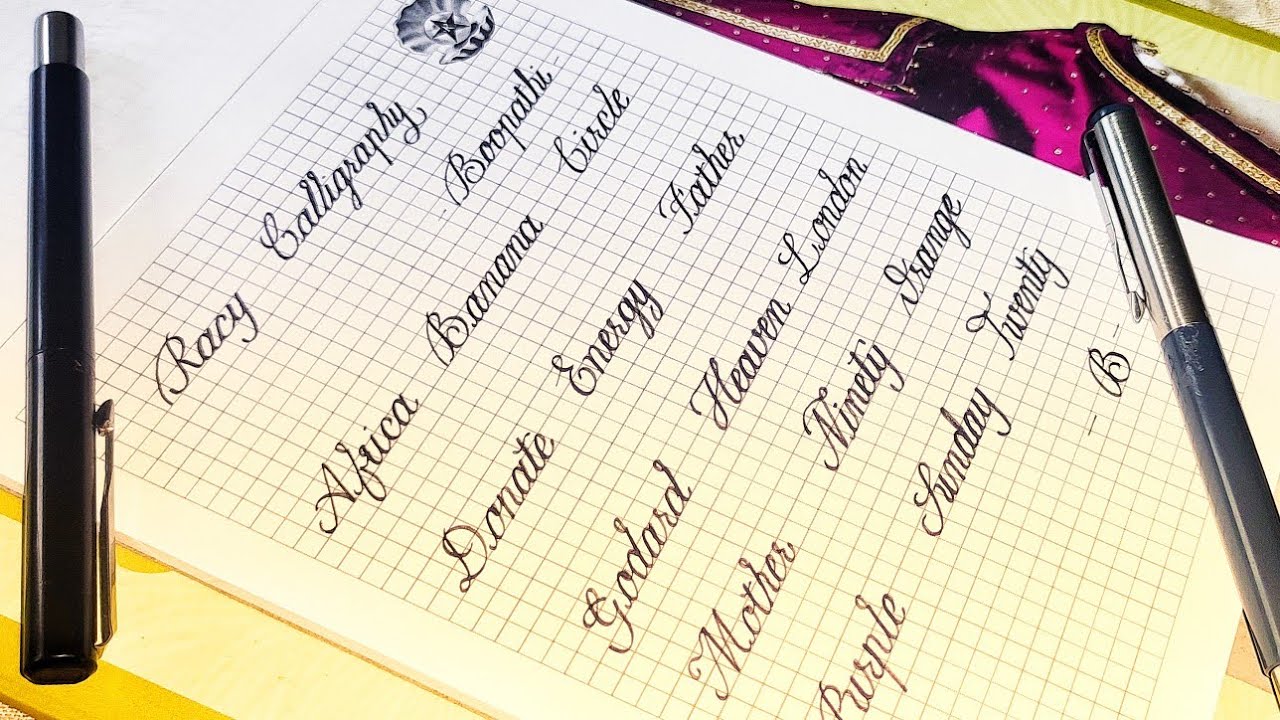 Racy Calligraphy
- Boopathi -
Africa Banana Circle
Donate Energy Father
Godard Heaven London
Mother Ninety Orange
Purple Sunday Twenty
- B -